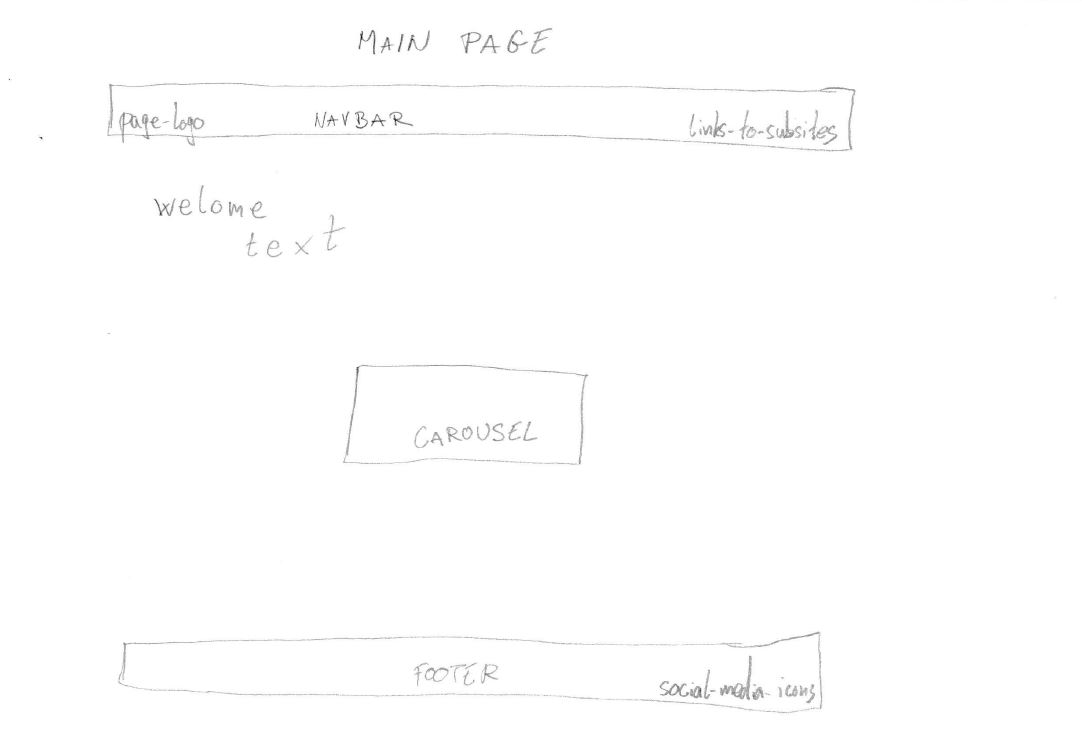 MAIN PAGE
page-logo NAVBAR links-to-subsites
welome
text
CAROUSEL
FOOTER social-media-icons